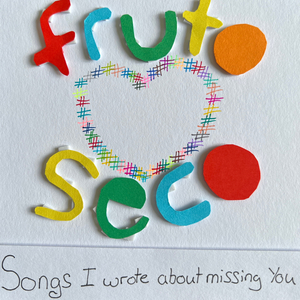 fruto
seco
Songs I wrote about missing You